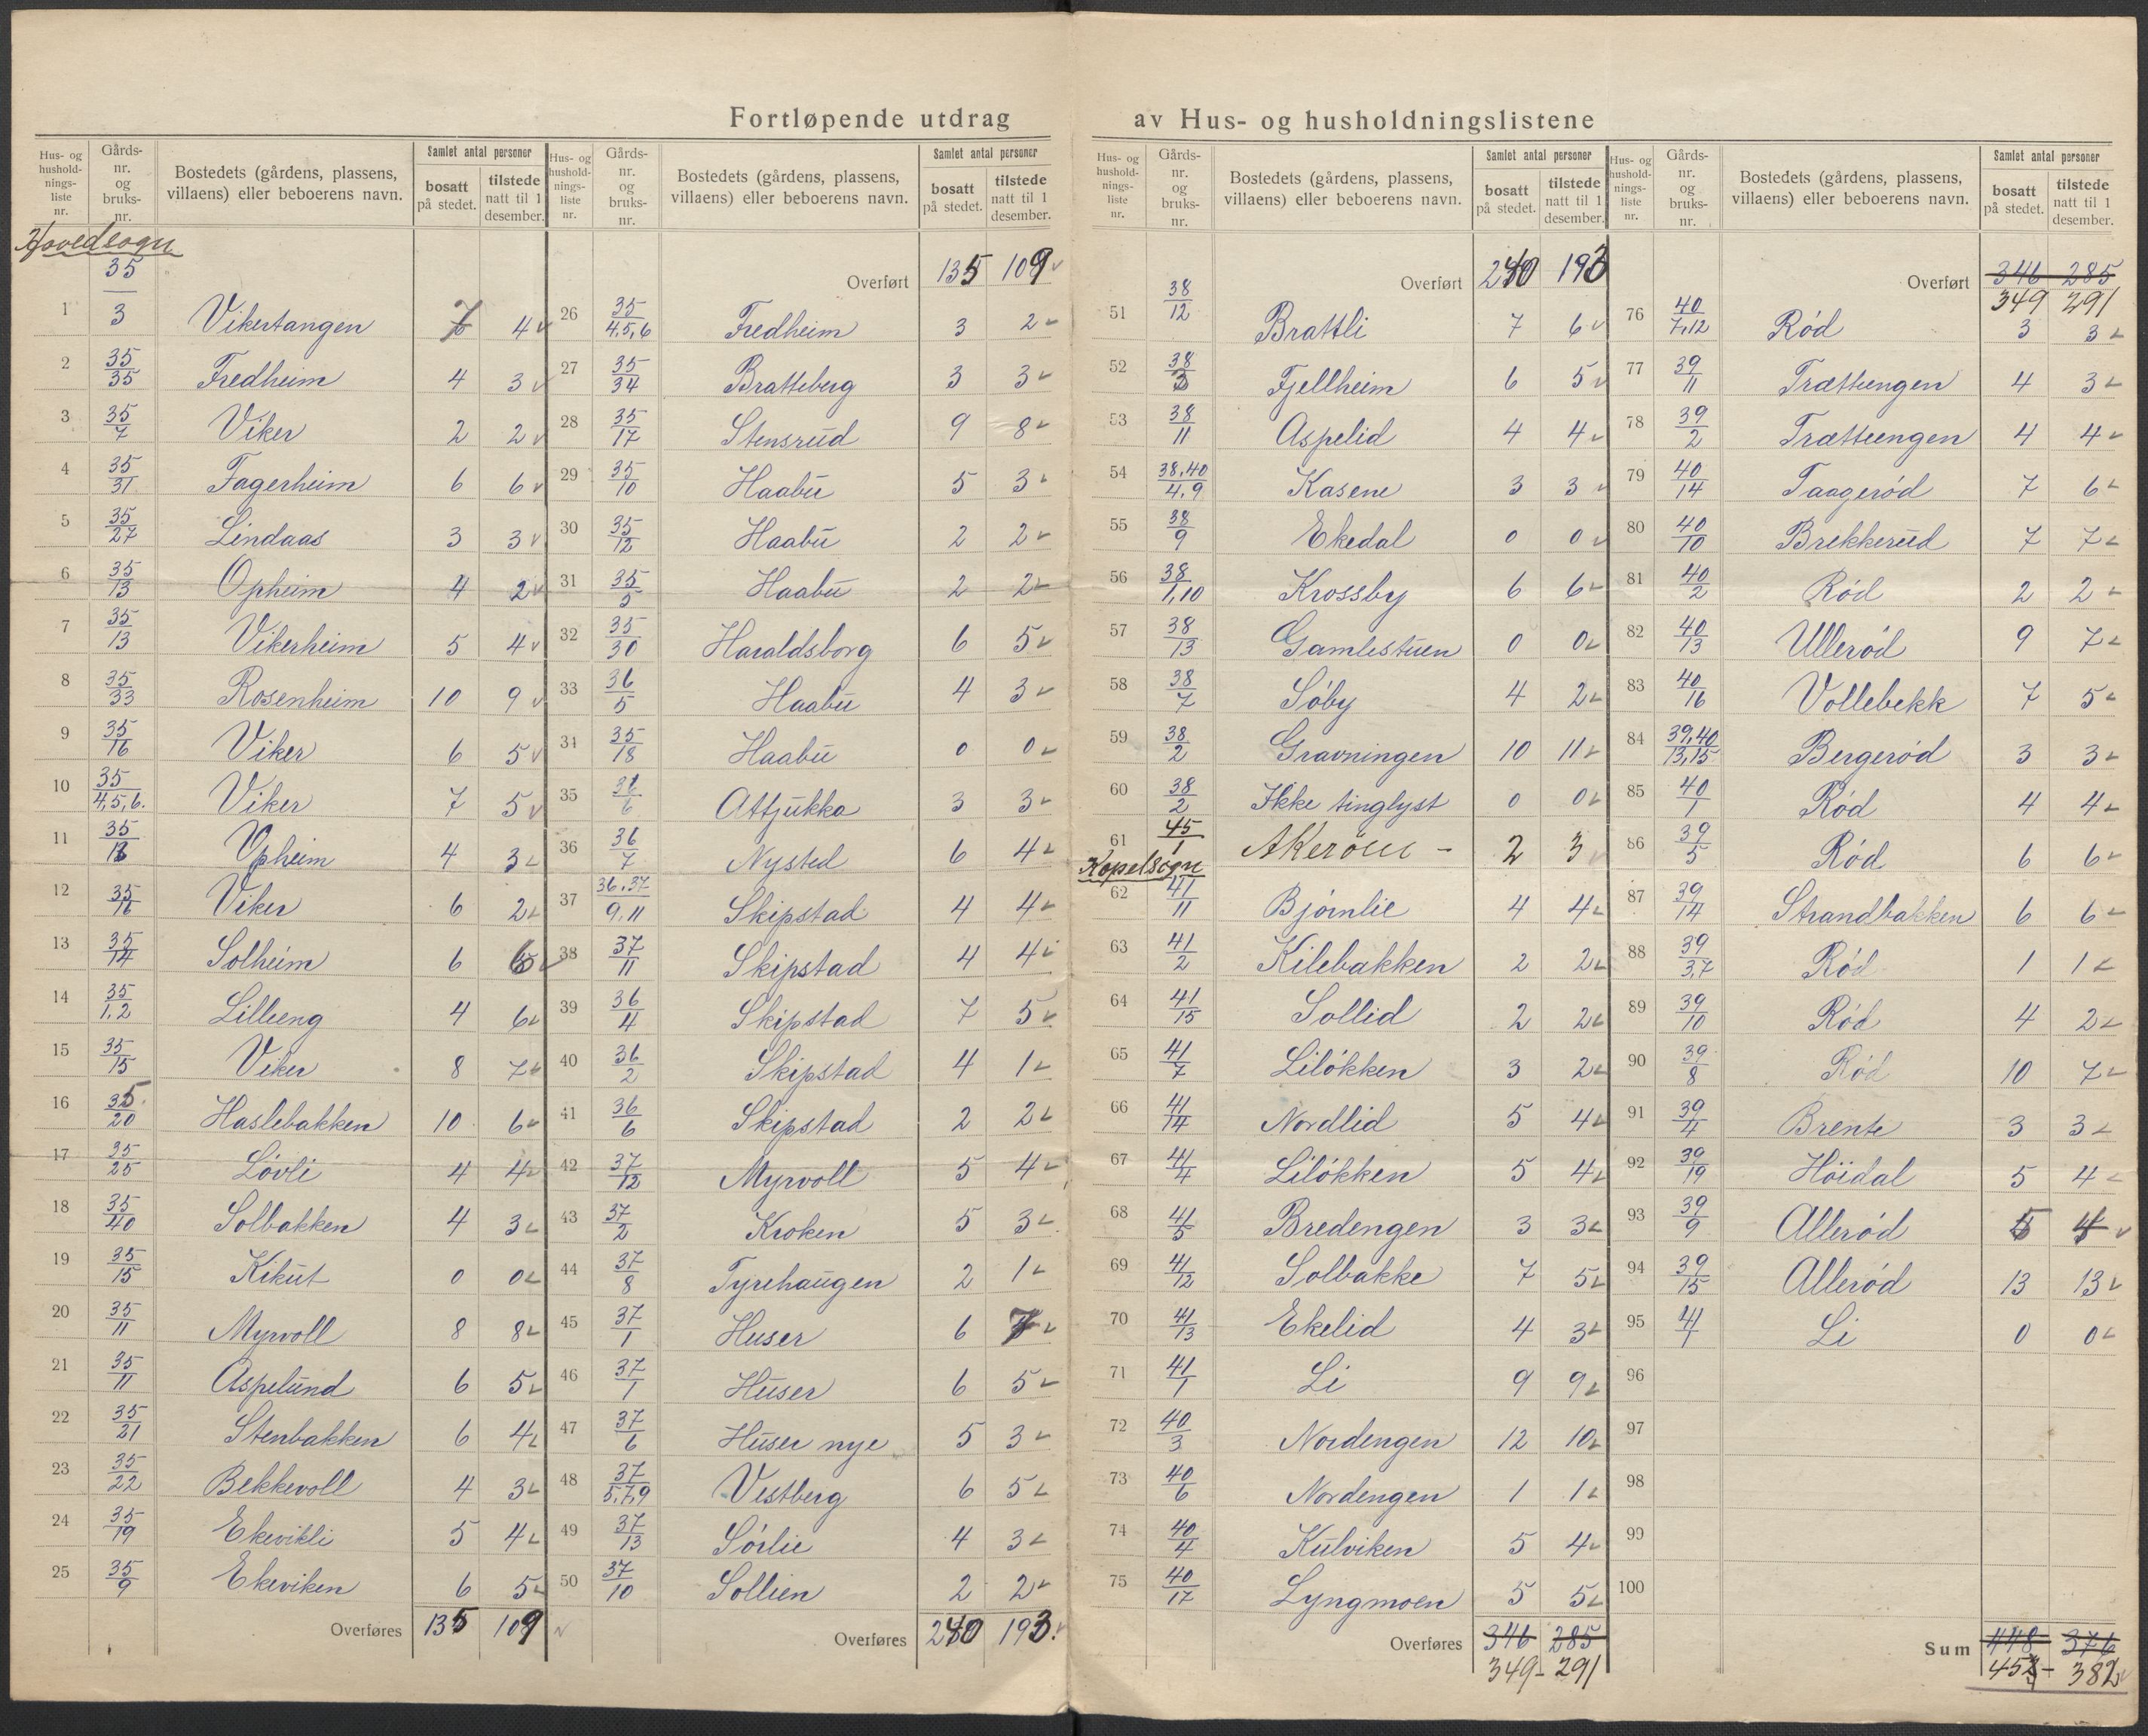 Fortløpende utdrag av Hus- og husholdningslistene
Hus- og husholdnings- liste nr. | Gårds- nr. og bruks- nr. | Bostedets (gårdens, plassens, villaens) eller beboerens navn. | Samlet antal personer bosatt på stedet. | tilstede natt til 1 desember.
Hovedsogn
1 35/3 Vikertangen 7 4
2 35/35 Fredheim 4 3
3 35/7 Viker 2 2
4 35/31 Fagerheim 6 6
5 35/27 Lindaas 3 3
6 35/13 Opheim 4 2
7 35/13 Vikerheim 5 4
8 35/33 Rosenheim 10 9
9 35/16 Viker 6 5
10 35/4,5,6. Viker 7 5
11 35/ Opheim 4 3
12 35/16 Viker 6 2
13 35/14 Solheim 6 6
14 35/1,2 Lilleeng 4 6
15 35/15 Viker 8 7
16 35/20 Haslebakken 10 6
17 35/25 Lövli 4 4
18 35/40 Solbakken 4 3
19 35/15 Kikut 0 0
20 35/11 Myrvoll 8 8
21 35/11 Aspelund 6 5
22 35/21 Stenbakken 6 4
23 35/22 Bekkevoll 4 3
24 35/19 Ekevikli 5 4
25 35/9 Ekeviken 6 5
Overføres 135 109
Hus- og husholdnings- liste nr. | Gårds- nr. og bruks- nr. | Bostedets (gårdens, plassens, villaens) eller beboerens navn. | Samlet antal personer bosatt på stedet. | tilstede natt til 1 desember.
Overført 135 109
26 35/4,5,6 Fredheim 3 2
27 35/34 Bratteberg 3 3
28 35/17 Stensrud 9 8
29 35/10 Haabu 5 3
30 35/12 Haabu 2 2
31 35/5 Haabu 2 2
32 35/30 Haraldsborg 6 5
33 36/5 Haabu 4 3
34 35/18 Haabu 0 0
35 36/6 Attjukka 3 3
36 36/7 Nysted 6 4
37 36,37/9,11 Skipstad 4 4
38 37/11 Skipstad 4 4
39 36/4 Skipstad 7 5
40 36/2 Skipstad 4 1
41 36/6 Skipstad 2 2
42 37/12 Myrvoll 5 4
43 37/2 Kroken 5 3
44 37/8 Tyrehaugen 2 1
45 37/1 Huser 6 7
46 37/1 Huser 6 5
47 37/6 Huser nye 5 3
48 37/5,7,9 Vestberg 6 5
49 37/13 Sörlie 4 3
50 37/10 Sollien 2 2
Overføres 240 193
Hus- og husholdnings- liste nr. | Gårds- nr. og bruks- nr. | Bostedets (gårdens, plassens, villaens) eller beboerens navn. | Samlet antal personer bosatt på stedet. | tilstede natt til 1 desember.
Overført 240 193
51 38/12 Brattli 7 6
52 38/3 Fjellheim 6 5
53 38/11 Aspelid 4 4
54 38,40/4,9 Kasene 3 3
55 38/9 Ekedal 0 0
56 38/1,10 Krossby 6 6
57 38/13 Gamlestuen 0 0
58 38/7 Söby 4 2
59 38/2 Gravningen 10 11
60 38/2 Ikke tinglyst 0 0
61 45/1 Akeröen - 2 3
Kapelsogn
62 41/11 Björnlie 4 4
63 41/2 Kilebakken 2 2
64 41/15 Sollid 2 2
65 41/7 Lilökken 3 2
66 41/14 Nordlid 5 4
67 41/4 Lilökken 5 4
68 41/5 Bredengen 3 3
69 41/12 Solbakke 7 5
70 41/13 Ekelid 4 3
71 41/1 Li 9 9
72 40/3 Nordengen 12 10
73 40/6 Nordengen 1 1
74 40/4 Kulviken 5 4
75 40/17 Lyngmoen 5 5
Overføres 346 285
349 - 291
Hus- og husholdnings- liste nr. | Gårds- nr. og bruks- nr. | Bostedets (gårdens, plassens, villaens) eller beboerens navn. | Samlet antal personer bosatt på stedet. | tilstede natt til 1 desember.
Overført 346 285
349 291
76 40/7,12 Röd 3 3
77 39/11 Trættungen 4 3
78 39/2 Trættungen 4 4
79 40/14 Taageröd 7 6
80 40/10 Brekkerud 7 7
81 40/2 Röd 2 2
82 40/13 Ulleröd 9 7
83 40/16 Vollebekk 7 5
84 39,40/13,15 Bergeröd 3 3
85 40/1 Röd 4 4
86 39/5 Röd 6 6
87 39/14 Strandbakken 6 6
88 39/3,7 Röd 1 1
89 39/10 Röd 4 2
90 39/8 Röd 10 7
91 39/4 Brente 3 3
92 39/19 Höidal 5 4
93 39/9 Alleröd 5 4
94 39/15 Alleröd 13 13
95 41/1 Li 0 0
96
97
98
99
100
Sum 448 376
452 - 382